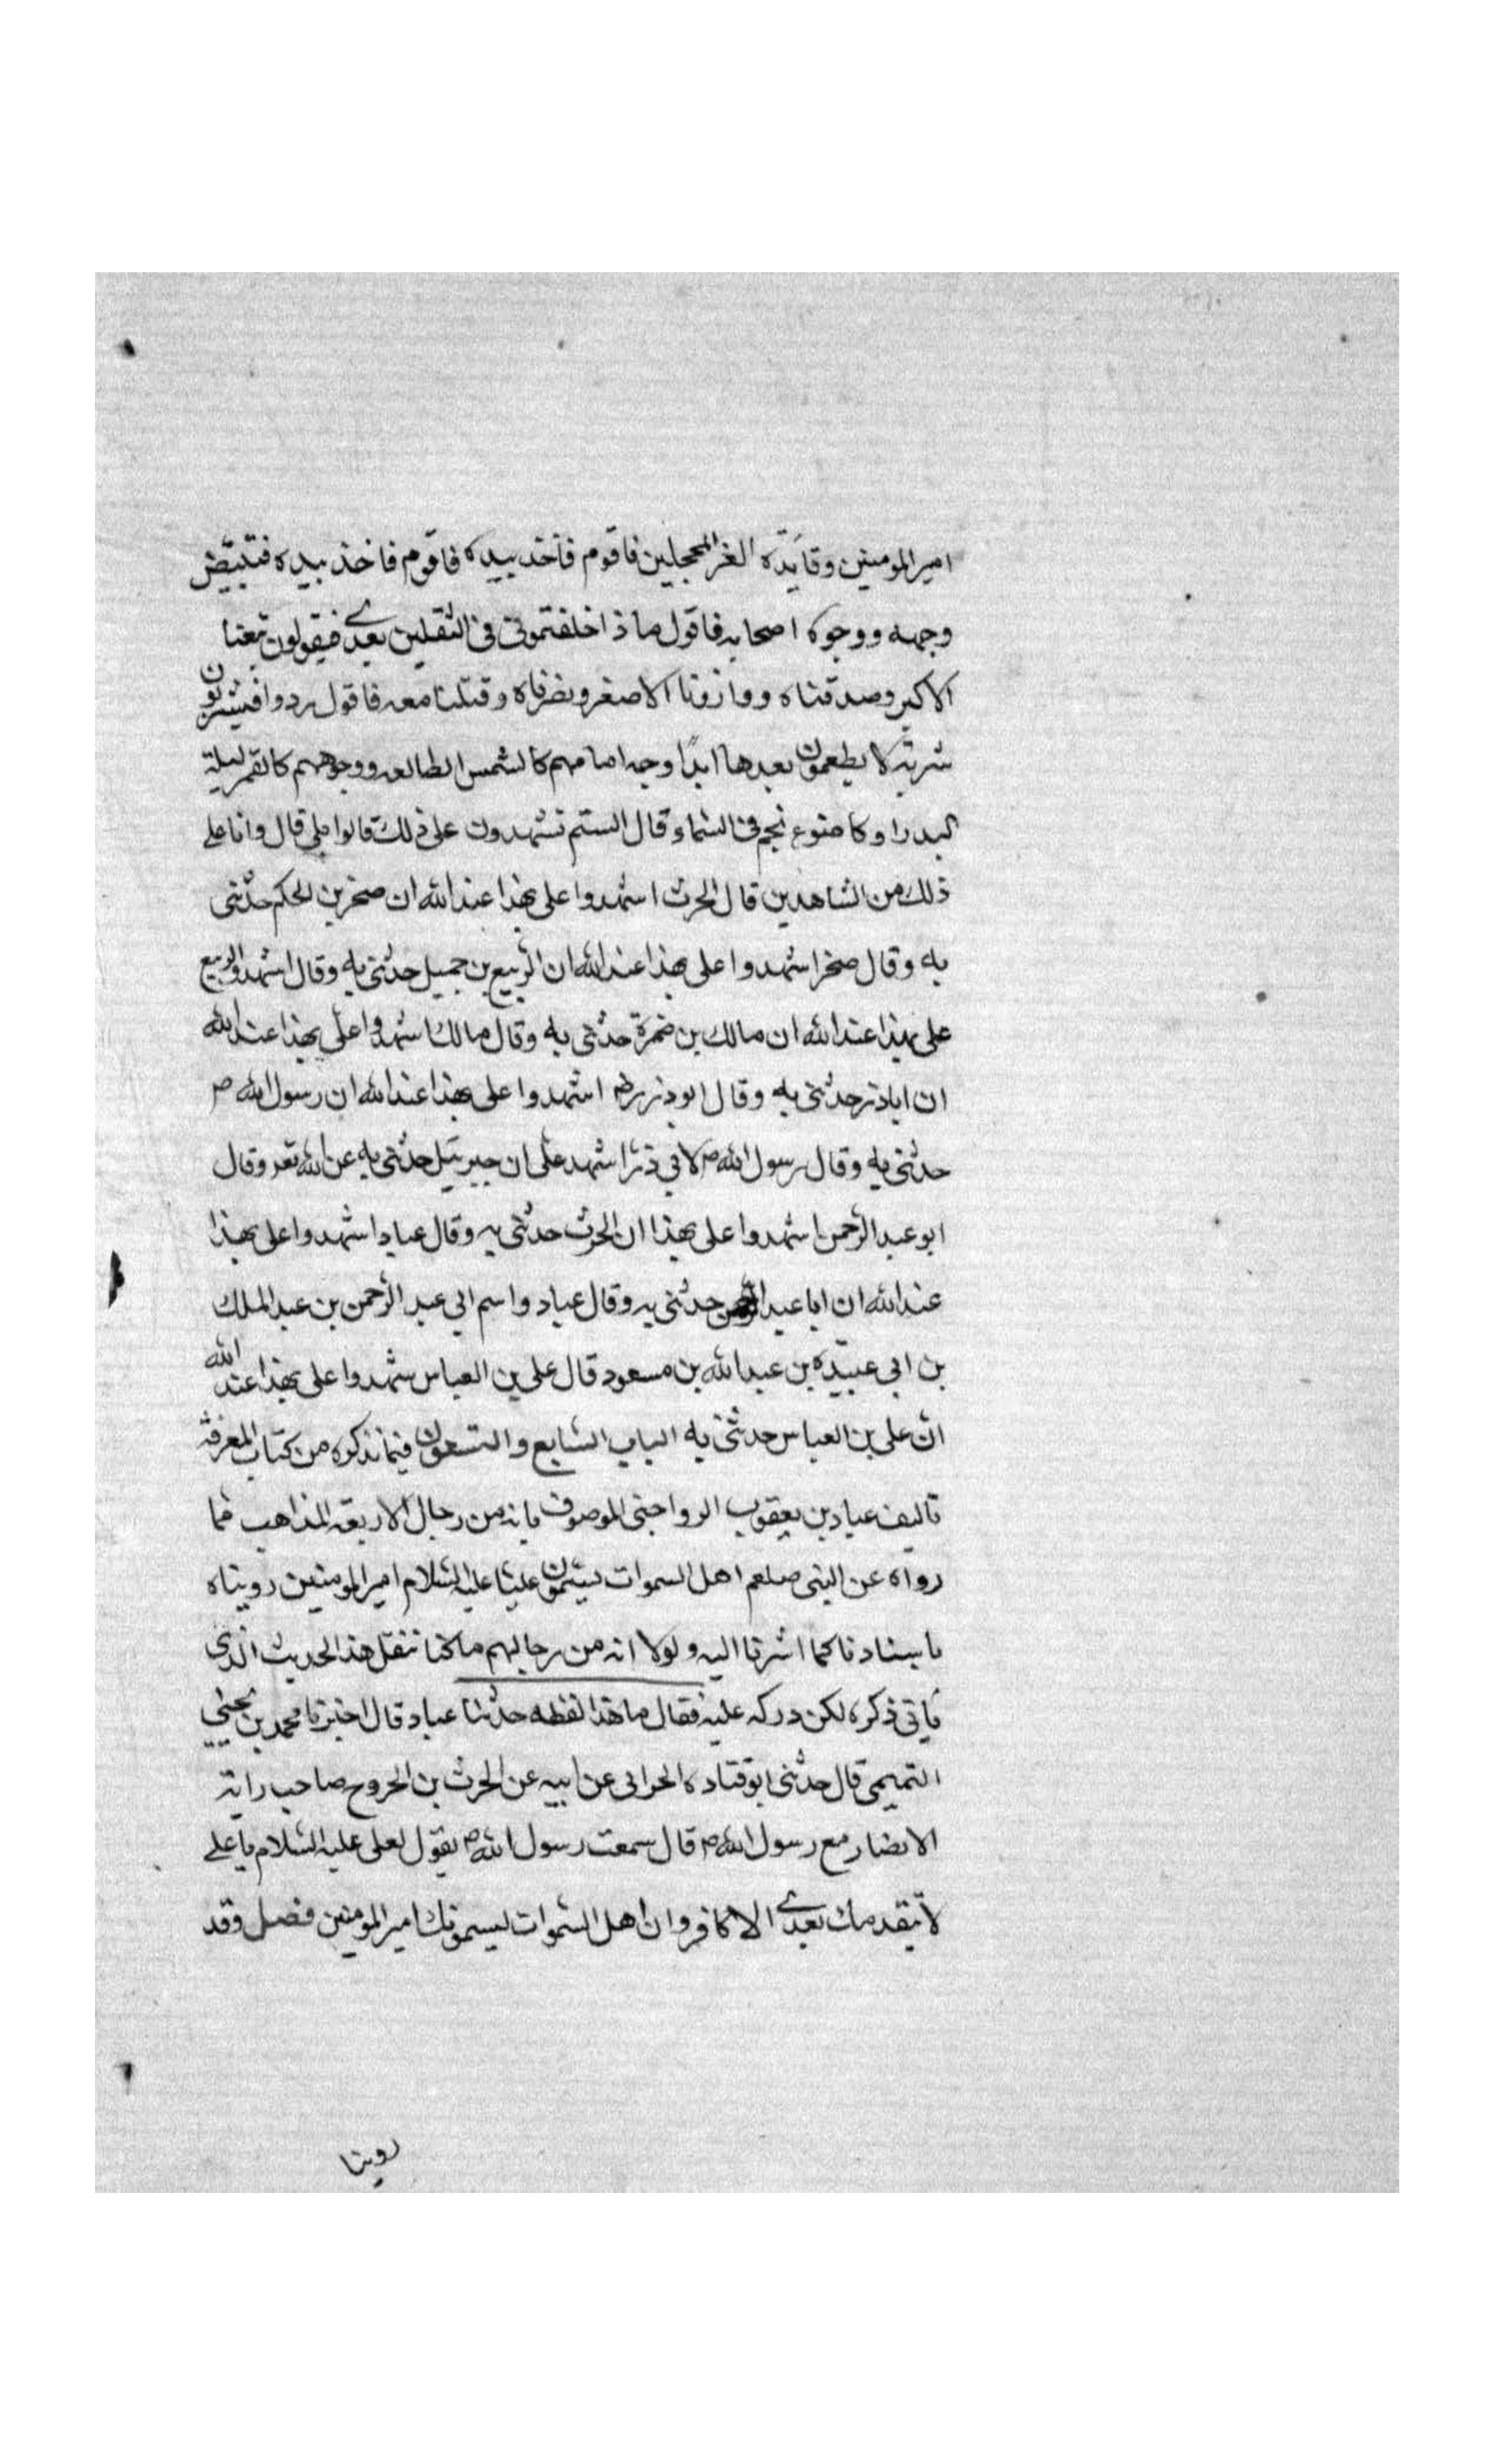 امير المومنين وقايده الغر المحجلين فاقوم فآخذ بيده فاقوم فاخذ بيده فتبيّض
وجهه ووجوه اصحابه فاقول ماذا خلفتموني في الثقلين بعدي فيقولون تبعنا
الاكبر وصدقناه ووازرنا الاصغر ونصرناه وقتلنا معه فاقول ردوا فيشربون
شربة لا يطعمون بعدها ابدًا وجه امامهم كالشمس الطالعه ووجوههم كالقمر ليلة
البدر او كاضوء نجم في السّماء قال الستم تشهدون على ذلك قالوا بلى قال وانا على
ذلك من الشاهدين قال الحرث اشهدوا على بهذا عند الله ان صخر بن الحكم حدّثني
به وقال صخر اشهدوا على بهذا عند الله ان الرّبيع بن جميل حدّثني به وقال اشهدوا الربيع
على بهذا عند الله ان مالك بن ضمرة حدثني به وقال مالك اشهدوا على بهذا عند الله
ان اباذر حدّثني به وقال ابوذر رض اشهدوا على بهذا عند الله ان رسول الله ص
حدثني به وقال رسول الله ص لابي ذر اشهد على ان جبرئيل حدّثني به عن الله تعه وقال
ابو عبد الرّحمن اشهدوا على بهذا ان الحرث حدثني به وقال عباد اشهدوا على بهذا
عند الله ان ابا عبد الرحمن حدّثني به وقال عباد واسم ابي عبد الرّحمن بن عبد الملك
بن ابي عبيده بن عبد الله بن مسعود قال على بن العباس شهدوا على بهذا عند الله
انّ على بن العباس حدثني به الباب السّابع والتسعون فيما نذكره من كتاب المعرفة
تاليف عباد بن يعقوب الرواجني الموصوف بانه من رجال الاربعة المذاهب فما
رواه عن النبي صلعم اهل السموات ليسّمون عليّا عليه السّلام امير المومنين رويناه
باسنادنا كما اشرنا اليه ولولا انه من رجالهم ما كنا ننقل هذا الحديث الذي
ياتي ذكره لكن دركه عليه فقال ما هذا لفظه حدّثنا عباد قال اخبرنا محمد بن يحيى
التميمي قال حدثني ابو قتاده الحراني عن ابيه عن الحرث بن الخروج صاحب راية
الانصار مع رسول الله ص قال سمعت رسول الله ص يقول لعلى عليه السّلام يا على
لا يتقدمك بعدي الا كافر وان اهل السّموات ليسمونك امير المومنين فصل وقد
روينا